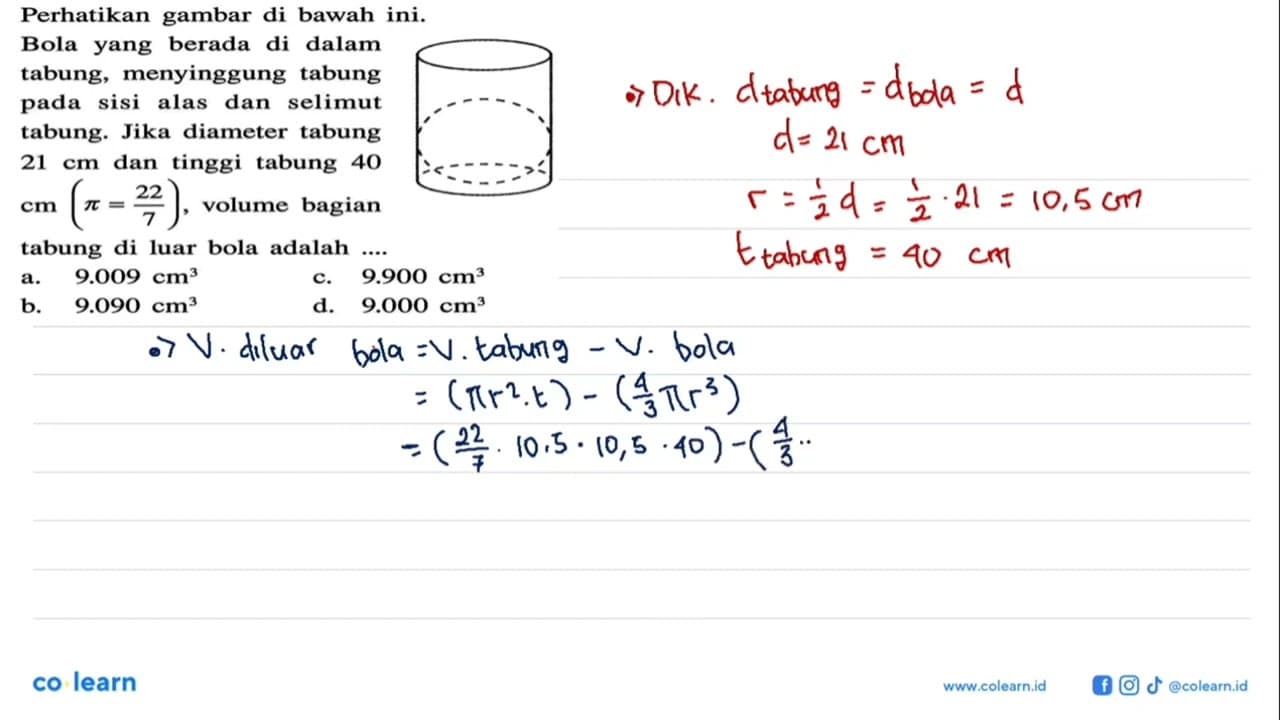 Perhatikan gambar di bawah ini.
Bola yang berada di dalam
tabung, menyinggung tabung
pada sisi alas dan selimut
tabung. Jika diameter tabung
21 cm dan tinggi tabung 40
cm (π = 22/7), volume bagian
tabung di luar bola adalah ....
a. 9.009 cm³ c. 9.900 cm³
b. 9.090 cm³ d. 9.000 cm³
•> DIK. d tabung = d bola = d
d = 21 cm
r = 1/2 d = 1/2 · 21 = 10,5 cm
t tabung = 40 cm
•> V. diluar bola = V. tabung - V. bola
= (πr².t) - (4/3 πr³)
= (22/7 · 10,5 · 10,5 · 40) - (4/3 ··
co learn
www.colearn.id
@colearn.id